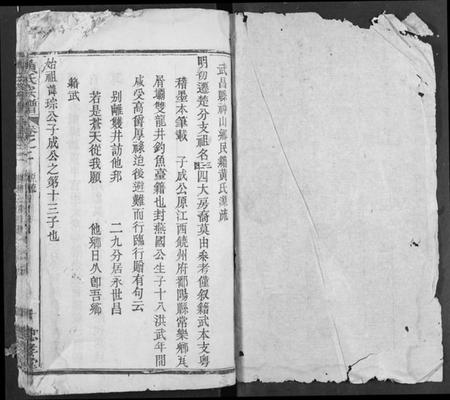 武昌縣神山鄉民籍黃氏源流
明初遷楚分支祖名二三四大房裔莫由叅考僅叙籍武本支粵
稽墨本筆載 子成公原江西饒州府鄱陽縣常樂鄉瓦
屑壩雙龍井釣魚臺籍也封燕國公生子十八洪武年間
咸受高爵厚祿迫後避難而行臨行賜有句云
别離幾井訪他邦 二九分居永世昌
若是蒼天從我願 他鄉日久卽吾鄉
籍武
始祖諱琮公子成公之第十三子也
氏宗譜 卷之一